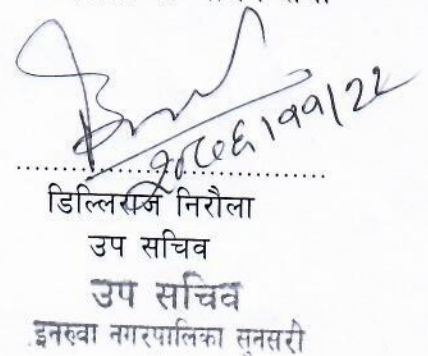 २०७६।११।२२
डिल्लिराज निरौला
उप सचिव
उप सचिव
इनरुवा नगरपालिका सुनसरी